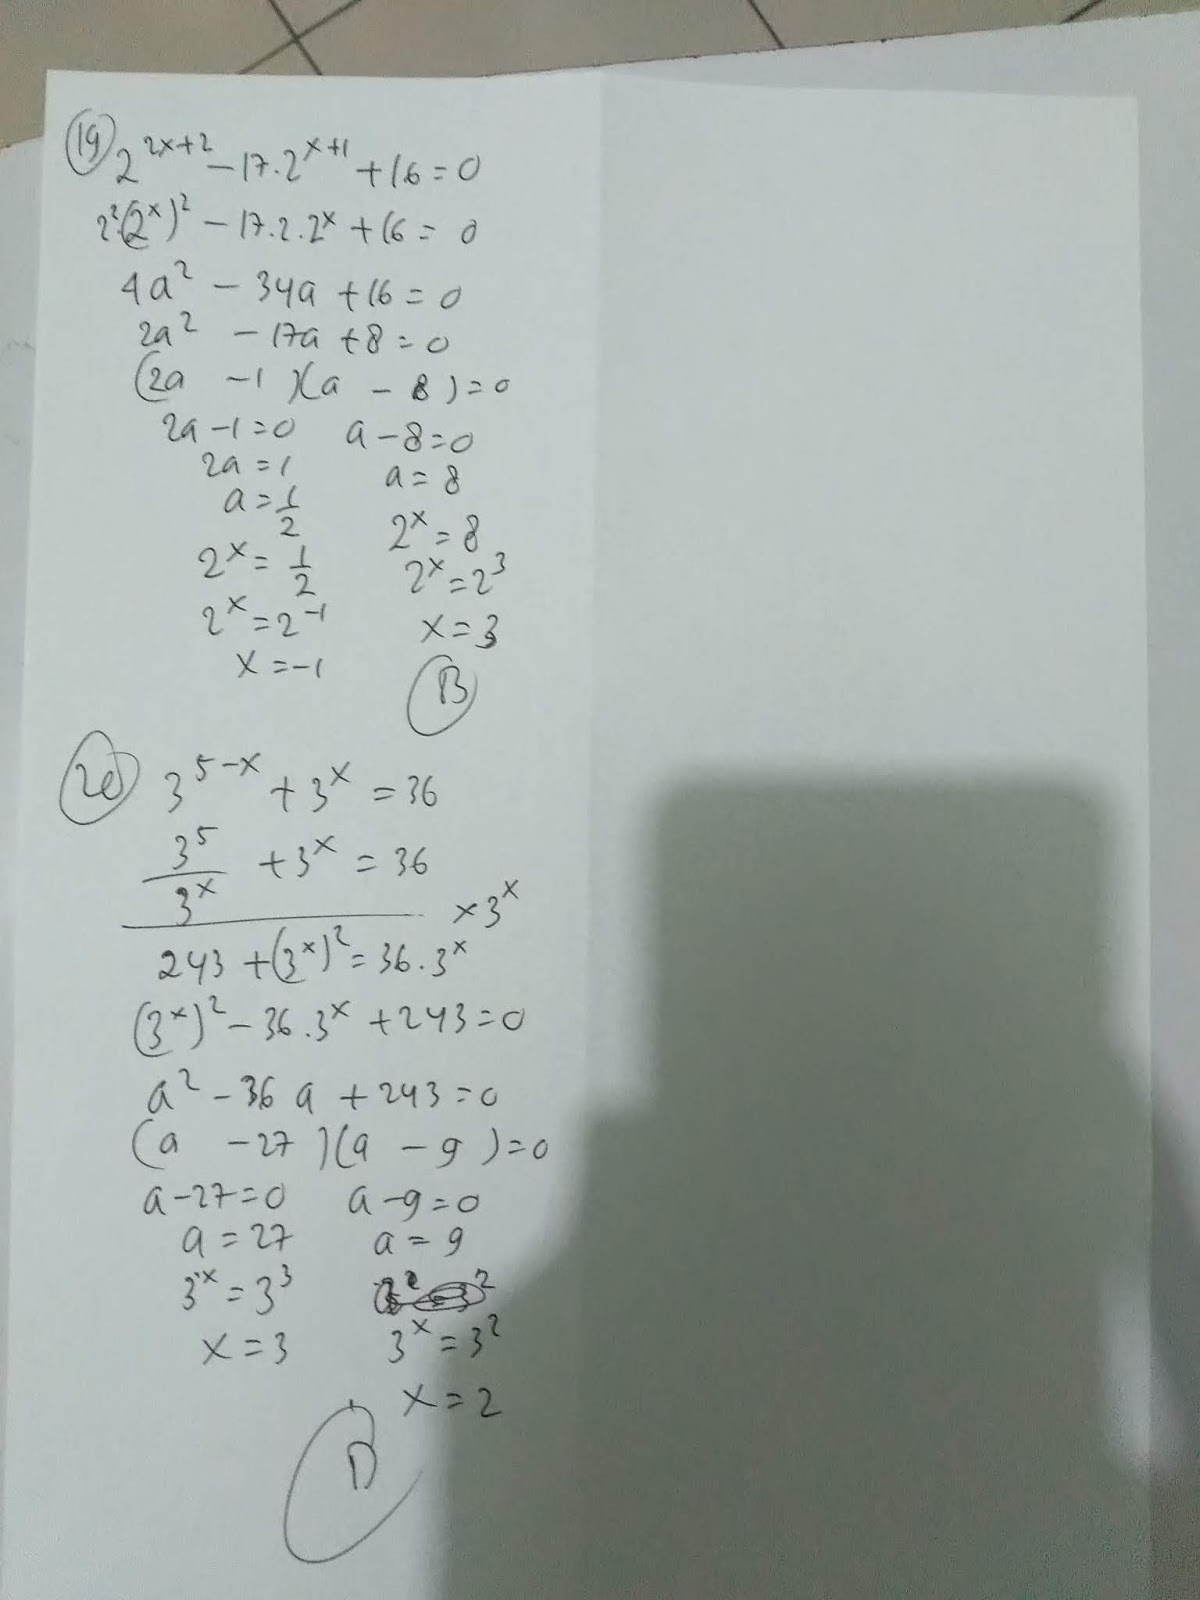 19 2^{2x+2} - 17.2^{x+1} + 16 = 0
2^2(2^x)^2 - 17.2.2^x + 16 = 0
4a^2 - 34a + 16 = 0
2a^2 - 17a + 8 = 0
(2a - 1)(a - 8) = 0
2a - 1 = 0 a - 8 = 0
2a = 1 a = 8
a = 1/2 2^x = 8
2^x = 1/2 2^x = 2^3
2^x = 2^{-1} x = 3
x = -1
B
20 3^{5-x} + 3^x = 36
3^5/3^x + 3^x = 36
× 3^x
243 + (3^x)^2 = 36.3^x
(3^x)^2 - 36.3^x + 243 = 0
a^2 - 36a + 243 = 0
(a - 27)(a - 9) = 0
a - 27 = 0 a - 9 = 0
a = 27 a = 9
3^x = 3^3
x = 3 3^x = 3^2
x = 2